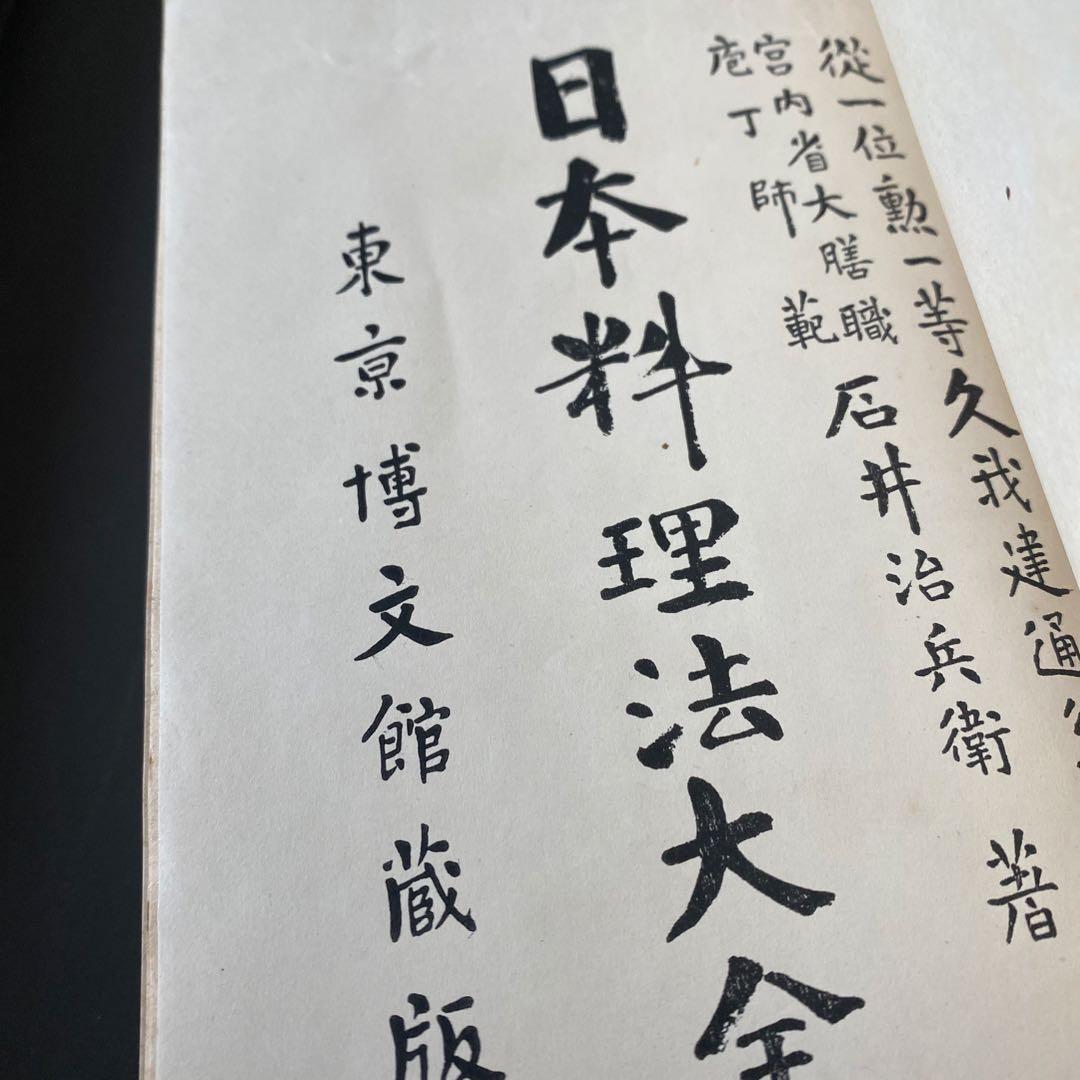 從一位勲一等久我建通
宮内省大膳職
庖丁師範
石井治兵衛 著
日本料理法大全
東京博文館蔵版